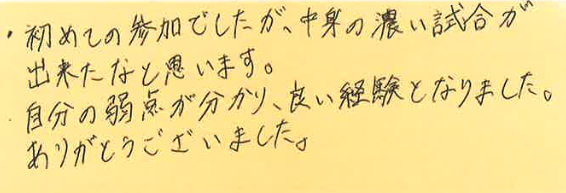 ・初めての参加でしたが、中身の濃い試合が
出来たなと思います。
・自分の弱点が分かり、良い経験となりました。
ありがとうございました。